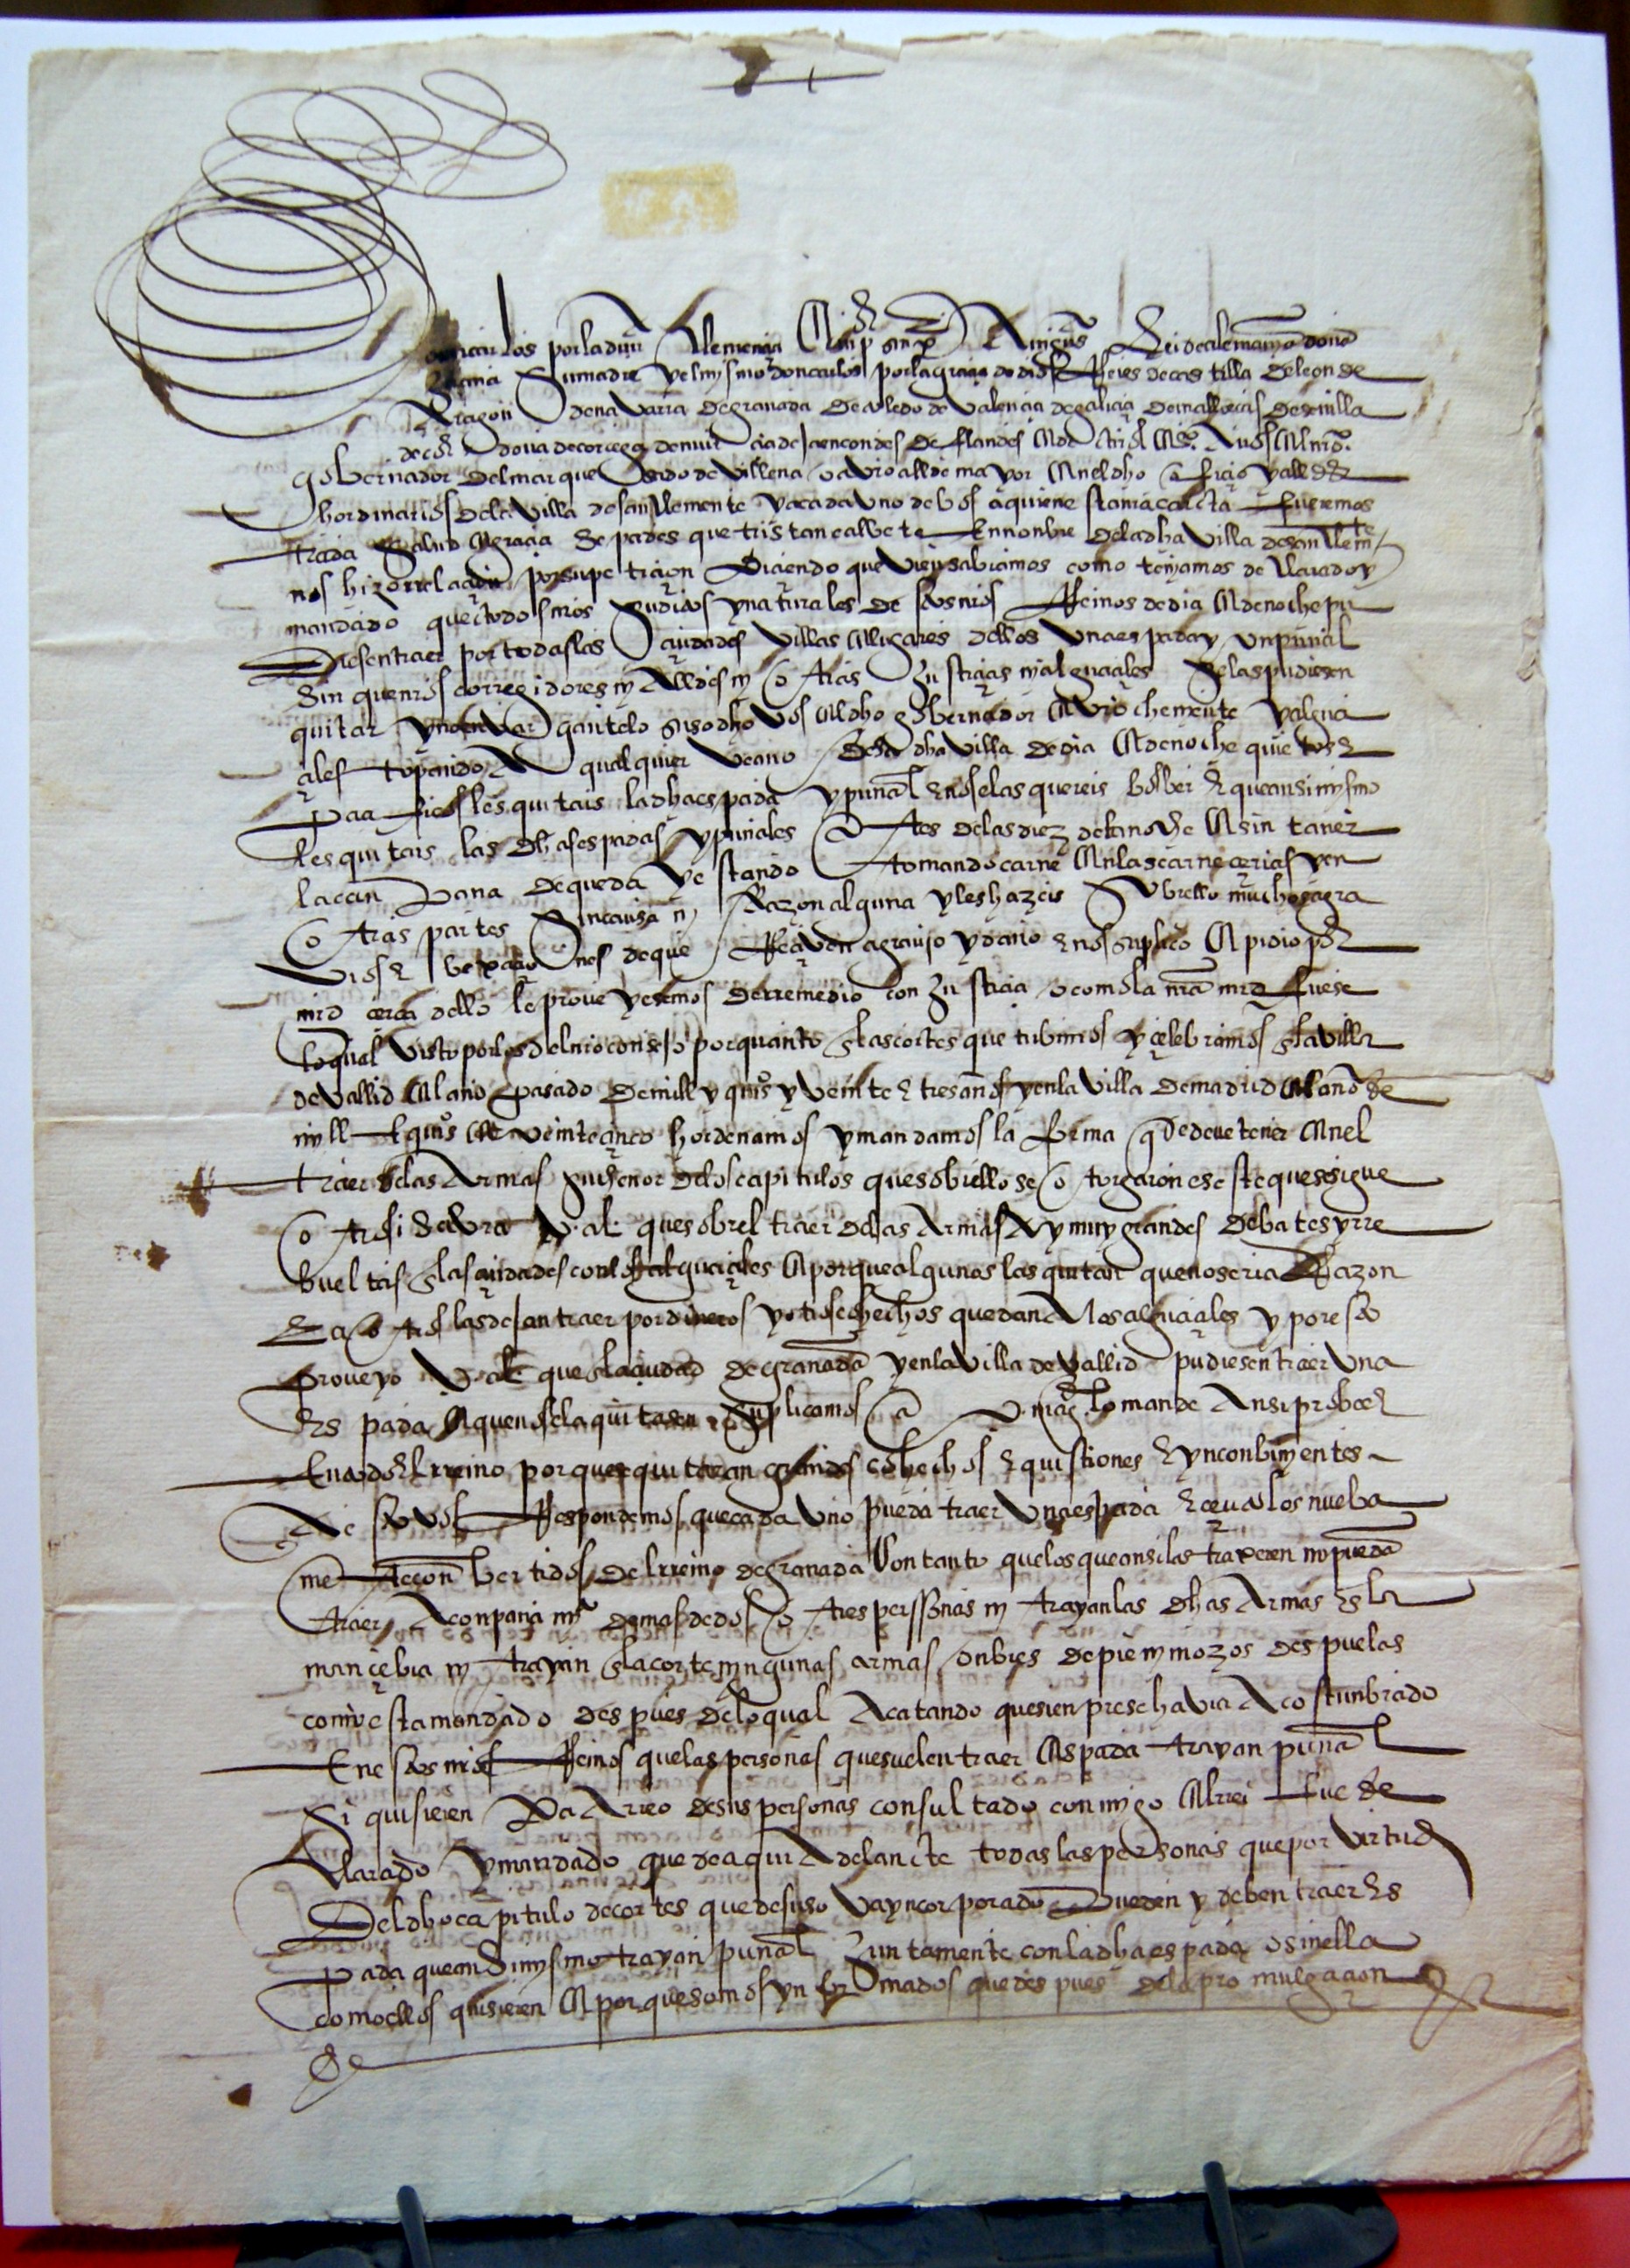 don carlos por la divina clemençia enp semp augus Rei de alemania doña
Juana su madre y el mysmo don carlos por la graçia de dios Reies de castilla de leon de
Aragon de navarra de granada de toledo de valençia de galiçia de mallorcas de sevilla
de cor dova de corçega de murçia de jaen condes de flandes
governador del marquesado de villena o a vro allde mayor en el dho ofiçio y allds
hordinarios de la villa de san clemente y a cada uno de vos a quien esta nra carta fuere mos
trada salud e graçia sepades que tristan calvete en nonbre de la dha villa de san clemte
nos hizo rrelaçion por su petiçion diziendo que vien sabiamos como teniamos declarado y
mandado que todos nros subditos y naturales de stos nros Reinos de dia e de noche pu
diesen traer por todas las çiudades villas e lugares dellos una espada y un puñal
sin que nros corregidores ny alldes ny otras justiçias ny alguaçiles se las pudiesen
quitar y no envargante lo suso dho vos el dho governador e vro theniente y algua
çiles topando a qualquier veçino de sa dha villa de dia e de noche quietos e
paçificos les quitais la dha espada y puñal e no se las quereis bolver e que ansimysmo
les quitais las dhas espadas y puñales antes de las diez de la noche e sin tañer
la canpana de queda y estando tomando carne en las carneçerias y en
otras partes sin causa ny Razon alguna y les hazeis sobrello muchos agra
vios e vexaçiones de que Reçiven agravio y daño e nos suplico e pidio por
mrd çerca dello le proveyesemos de rremedio con justiçia o como la nra mrd fuese
lo qual visto por los del nro consejo por quanto en las cortes que tubimos y çelebramos en la villa
de vallid el año pasado de mill y quis y veinte e tres años y en la villa de madrid el año de
mill e quis e veinte çinco hordenamos y mandamos la forma que se deve tener en el
traer de las armas su thenor de los capitulos que sobrello se otorgaron es este que se sigue
otrosi savra v. al. que sobrel traer de las armas ay muy grandes debates y rre
bueltas en las çiudades con los alguaçiles e porque algunos las quitan que no seria Razon
e a otros las dejan traer por dineros y otros cohechos que dan a los alguaçiles y por esto
proveyo v. al. que en la çiudad de granada y en la villa de vallid pudiesen traer una
espada e que no se la quitasen suplicamos a v. mag. lo mande ansi probeer
en todo el rreino porque se quitaran grandes cohechos e quistiones e ynconbinyentes
A esto vos Respondemos que cada uno pueda traer una espada eçeto los nueba
mente conbertidos del rreino de granada con tanto que los que ansi las traxeren no puedan
traer aconpañamyto de mas de dos o tres perssonas ny trayan las dhas armas en la
mançebia ny trayan en la corte nyngunas armas onbres de pie ny mozos despuelas
como esta mandado despues de lo qual acatando que sienpre se havia acostunbrado
en estos nros Reinos que las personas que suelen traer espada trayan puñal
si quisieren para arreo de sus personas consultado con migo el rrei fue de
clarado y mandado que de aqui adelante todas las personas que por virtud
del dho capitulo de cortes que de suso va yncorporado pueden y deben traer es
pada que ansimysmo trayan puñal juntamente con la dha espada o sin ella
como ellos quisieren e porque somos ynformados que despues de la promulgaçion
de